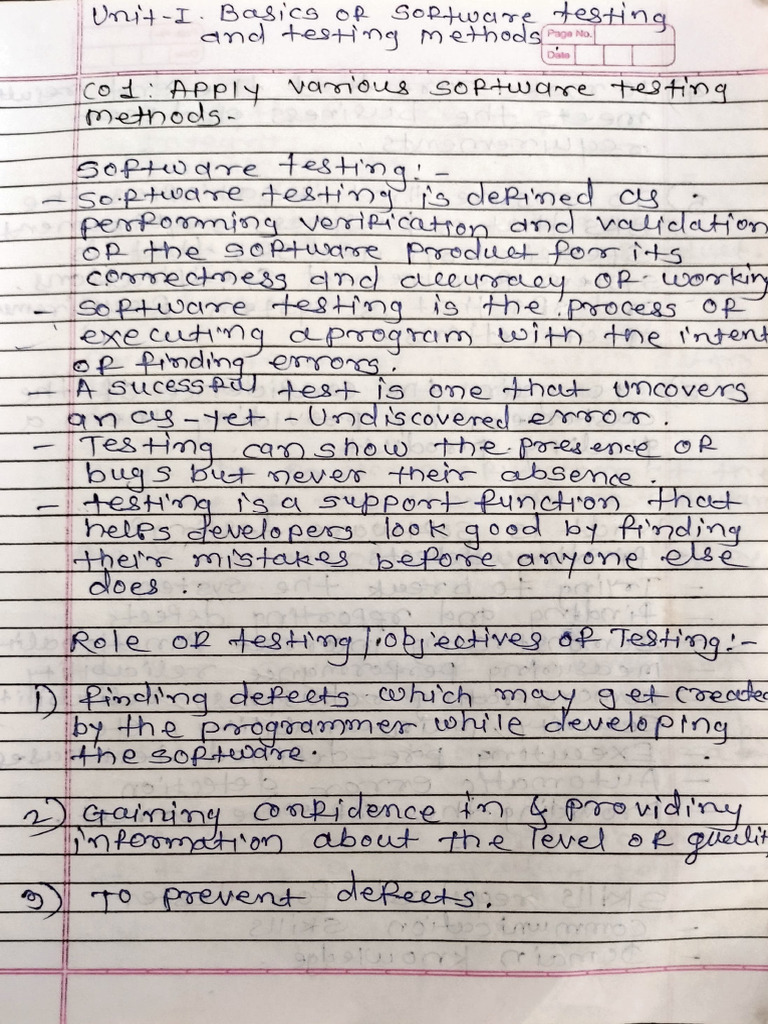 Unit-I. Basics of software testing
and testing methods
Page No.
Date
CO1: APPLY various software testing
methods-
Software testing:-
- software testing is defined as
performing verification and validation
of the software product for its
correctness and accuracy of working
- software testing is the process of
executing a program with the intent
of finding errors.
- A sucessful test is one that uncovers
an as-yet-undiscovered error.
- Testing can show the presence of
bugs but never their absence.
- testing is a support function that
helps developers look good by finding
their mistakes before anyone else
does.
Role of testing / objectives of Testing:-
1) finding defects which may get created
by the programmer while developing
the software.
2) Gaining confidence in & providing
information about the level of quality
3) To prevent defects.